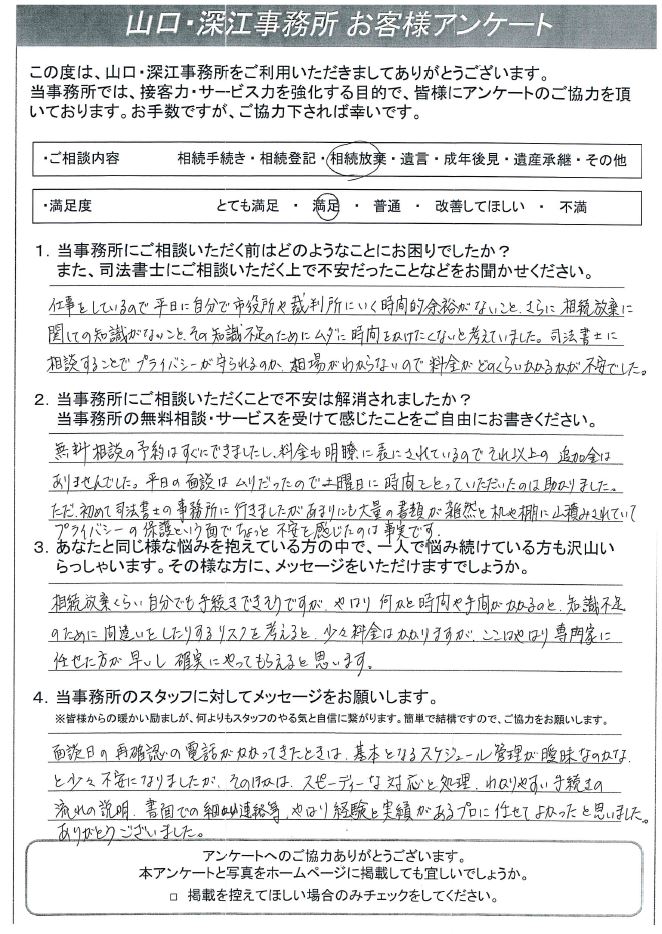 山口・深江事務所 お客様アンケート
この度は、山口・深江事務所をご利用いただきましてありがとうございます。
当事務所では、接客力・サービス力を強化する目的で、皆様にアンケートのご協力を頂
いております。お手数ですが、ご協力下されば幸いです。
・ご相談内容 相続手続き・相続登記・相続放棄・遺言・成年後見・遺産承継・その他
・満足度 とても満足 ・ 満足 ・ 普通 ・ 改善してほしい ・ 不満
1. 当事務所にご相談いただく前はどのようなことにお困りでしたか?
また、司法書士にご相談いただく上で不安だったことなどをお聞かせください。
仕事をしているので平日に自分で市役所や裁判所にいく時間的余裕がないこと、さらに相続放棄に
関しての知識がないこと、その知識不足のためにムダに時間をかけたくないと考えていました。司法書士に
相談することでプライバシーが守られるのか、相場がわからないので料金がどのくらいかかるかが不安でした。
2. 当事務所にご相談いただくことで不安は解消されましたか?
当事務所の無料相談・サービスを受けて感じたことをご自由にお書きください。
無料相談の予約はすぐにできましたし、料金も明瞭に表にされているのでそれ以上の追加金は
ありませんでした。平日の面談はムリだったので土曜日に時間をとっていただいたのは助かりました。
ただ、初めて司法書士の事務所に行きましたがあまりにも大量の書類が雑然と机や棚に山積みされていて
プライバシーの保護という面でちょっと不安を感じたのは事実です。
3. あなたと同じ様な悩みを抱えている方の中で、一人で悩み続けている方も沢山い
らっしゃいます。その様な方に、メッセージをいただけますでしょうか。
相続放棄くらい自分でも手続きできそうですが、やはり何かと時間や手間がかかるのと、知識不足
のために間違いをしたりするリスクを考えると、少々料金はかかりますが、ここはやはり専門家に
任せた方が早いし確実にやってもらえると思います。
4. 当事務所のスタッフに対してメッセージをお願いします。
※皆様からの暖かい励ましが、何よりもスタッフのやる気と自信に繋がります。簡単で結構ですので、ご協力をお願いします。
面談日の再確認の電話がかかってきたときは、基本となるスケジュール管理が曖昧なのかな、
と少々不安になりましたが、そのほかは、スピーディーな対応と処理、わかりやすい手続きの
流れの説明、書面での細かい連絡等、やはり経験と実績があるプロに任せてよかったと思いました。
ありがとうございました。
アンケートへのご協力ありがとうございます。
本アンケートと写真をホームページに掲載しても宜しいでしょうか。
□ 掲載を控えてほしい場合のみチェックをしてください。